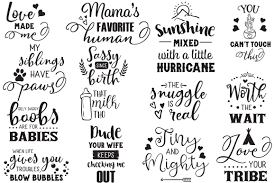 Love
MADE
me
Mama's
FAVORITE
HUMAN
Sunshine
MIXED
with a little
HURRICANE
YOU
CAN'T TOUCH
this
MY
siblings
HAVE
paws
Sassy
since
birth
THE
snuggle
is
real
Worth
THE
Wait
SILLY DADDY
boobs
ARE FOR
BABIES
THAT
milk
THO
WHEN LIFE
gives you
TROUBLES
BLOW BUBBLES
Dude
YOUR WIFE
KEEPS
CHECKING ME
OUT
Tiny
and
Mighty
Love
YOUR
TRIBE